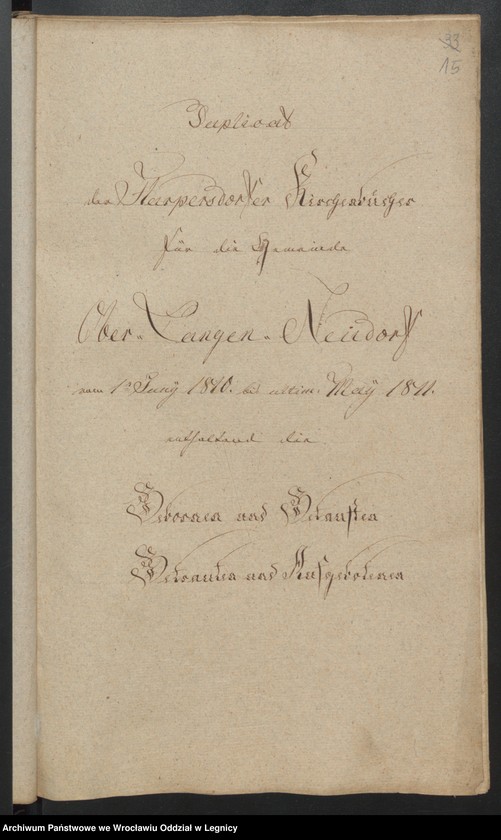 33
15
Duplicat
der Harpersdorfer Kirchenbücher
für die Gemeinde
Ober-Langen-Neudorf
vom 1n Juny 1810. bis ultim. May 1811.
enthaltend die
Gebornen und Getauften
Getrauten und Aufgebotenen
Archiwum Państwowe we Wrocławiu Oddział w Legnicy